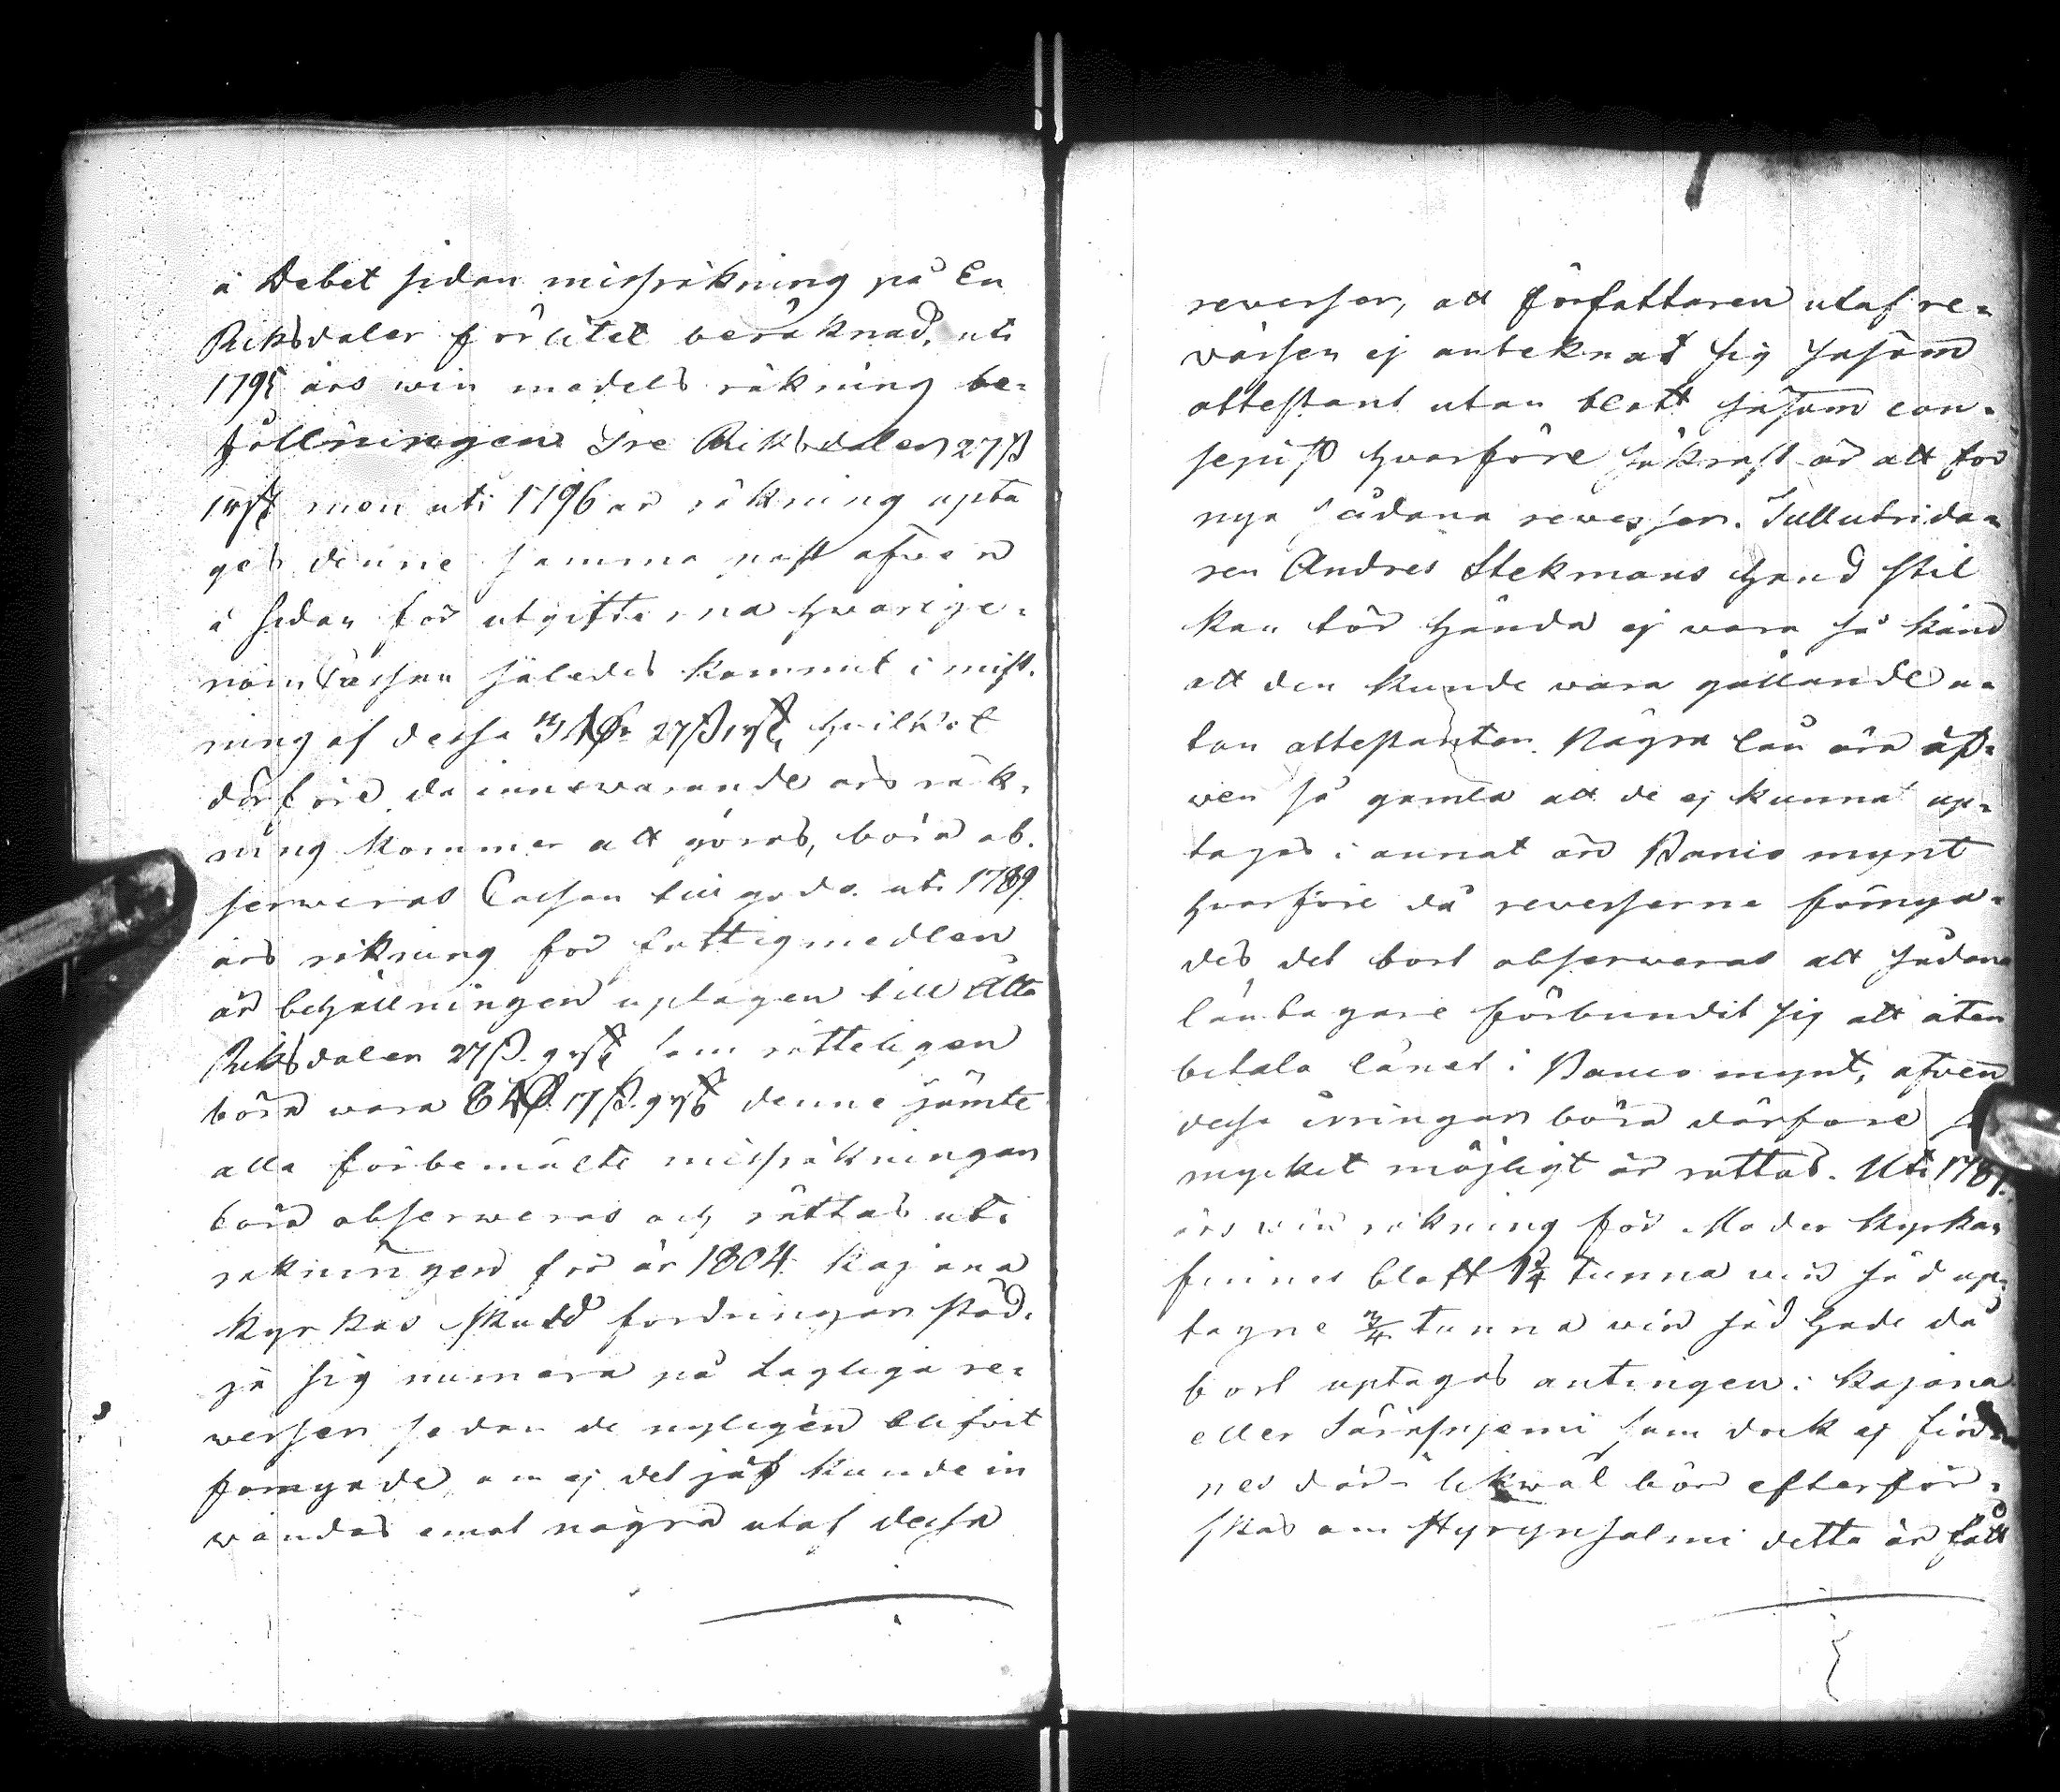 å Debet sidan missräkning på En
Riksdaler förlitet beräknad, uti
1795 års win medels räkning be-
hållningen Tre Riksdaler 27 ß
men uti 1796 ars räkning upta
ges denne samma post afven
å sidan för utgifterna hwarige-
nom Cassan således kommit i mist-
ning af dessa 3 Rdr 27 ß hvilket
därföre då innewarande ars räk-
ning kommer att göras, böra ob-
serweras Cassan till godo. uti 1789
års räkning för fattigmedlen
är behållningen uptagen till Åtta
Riksdaler 27 ß. 9 som rätteligen
böra wara 8 Rdr. 17 ß. 9 denne jämte
alla förbemälte missräkningar
böra obserweras och rättas uti
räkningen för år 1804. Kajana
kyrkas skuld fordringar städ-
ja sig numera på laglega re-
werser sedan de nyligen blifvit
förnyade om ej det jäf kunde in
wändas emot några utaf dessa
reverser, att författaren utaf re-
vërsen ej anteknat sig såsom
attestant utan blott såsom con-
sepist hvarföre säkrast är att för
nya sådana reverser. Tullutrida-
ren Andres Stekmans hand stil
kan tör hända ej wara så känd
att den kunde wara gällande u-
tan attestanter. Några lån äro äf-
ven så gamla att de ej kunnat up-
tagas i annat än Banco mynt
hvarföre då reverserne förnya-
des det bort obserweras att sådane
låntagare förbundit sig att åter
betala lånet i Banco mynt, äfven
desse irringar böra därföre så
mycket möjligt är rättas. Uti 1787.
års win räkning för Moder kyrkan
finnes blott 1 3/4 tunna win såd up-
tagne 3/4 tunna vin såd hade då
bort uptagas antingen i Kajana
eller Säräisnjemi som dock ej fin-
nes där likwäl bör efterfor-
skas om Hyrynsalmi detta år fått